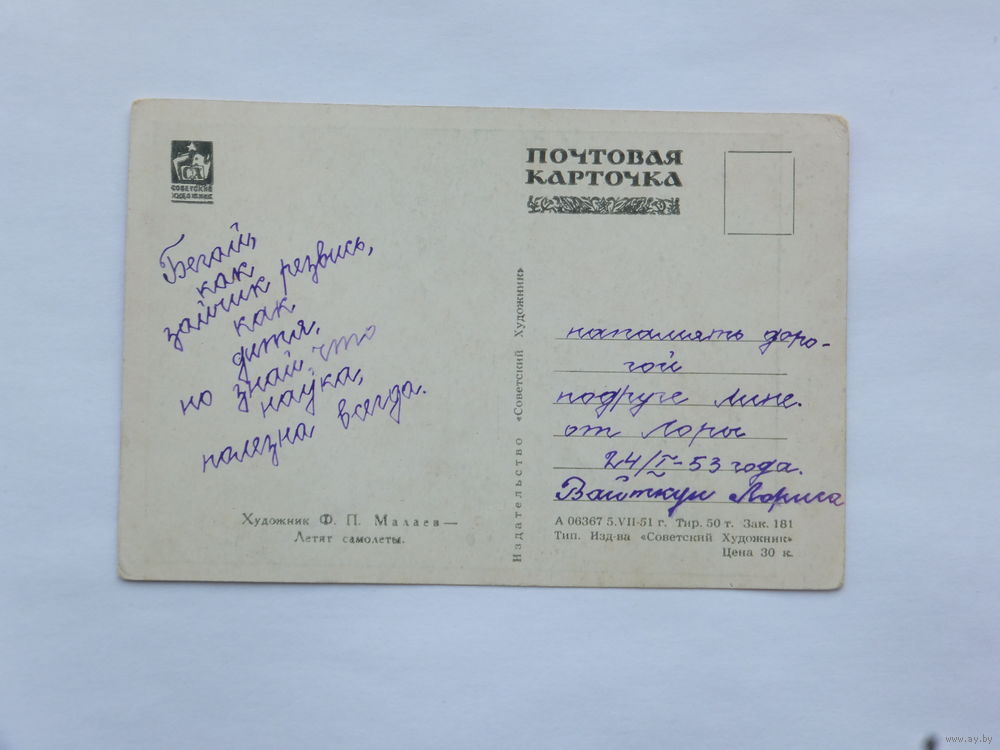 СОВЕТСКИЙ
ХУДОЖНИК
ПОЧТОВАЯ
КАРТОЧКА
Бегай,
как
зайчик резвись,
как
дитя,
но знай что
наука,
полезна всегда.
Художник Ф. П. Малаев—
Летят самолеты.
Издательство «Советский Художник»
напамять доро-
гой
подруге Мине.
от Лоры
24/I-53 года.
Вайткун Лориса
А 06367 5.VII-51 г. Тир. 50 т. Зак. 181
Тип. Изд-ва «Советский Художник»
Цена 30 к.
www.ay.by